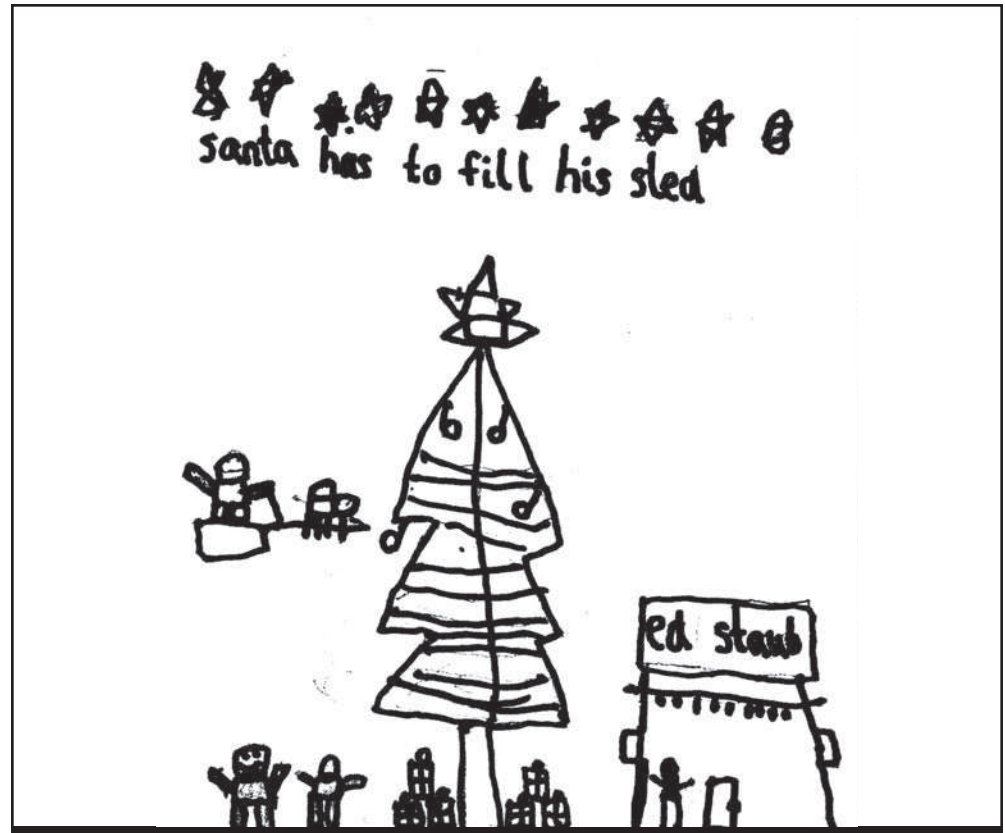 santa has to fill his sled
ed staub